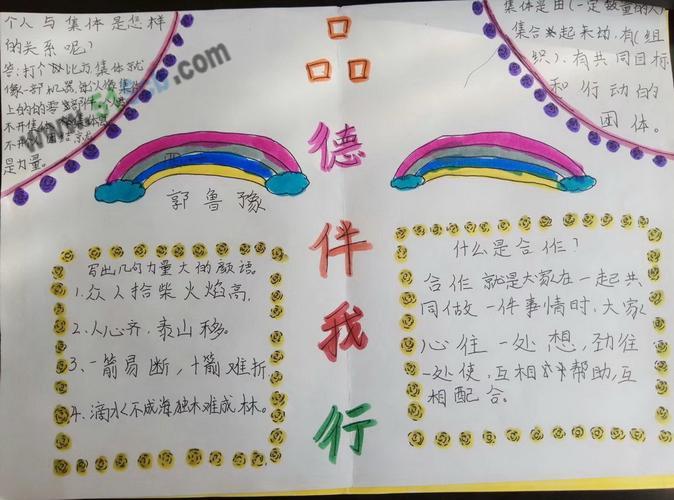 个人与集体是怎样
的关系呢?
答:打个比方,集体就
像一部机器,
上的的零部件,
不开集体
不开
是力量。
品德伴我行
集体是由(一定数量的人)
集合起来动,有(组
织),有共同目标
和行动的
团体。
郭鲁豫
写出几句力量大的颜语。
1.众人拾柴火焰高,
2.人心齐,泰山移。
3.一箭易断,十箭难折
4.滴水不成海独木难成林。
什么是合作?
合作就是大家在一起共
同做一件事情时,大家
心往一处想,劲往
一处使,互相帮助,互
相配合。
www.
.com